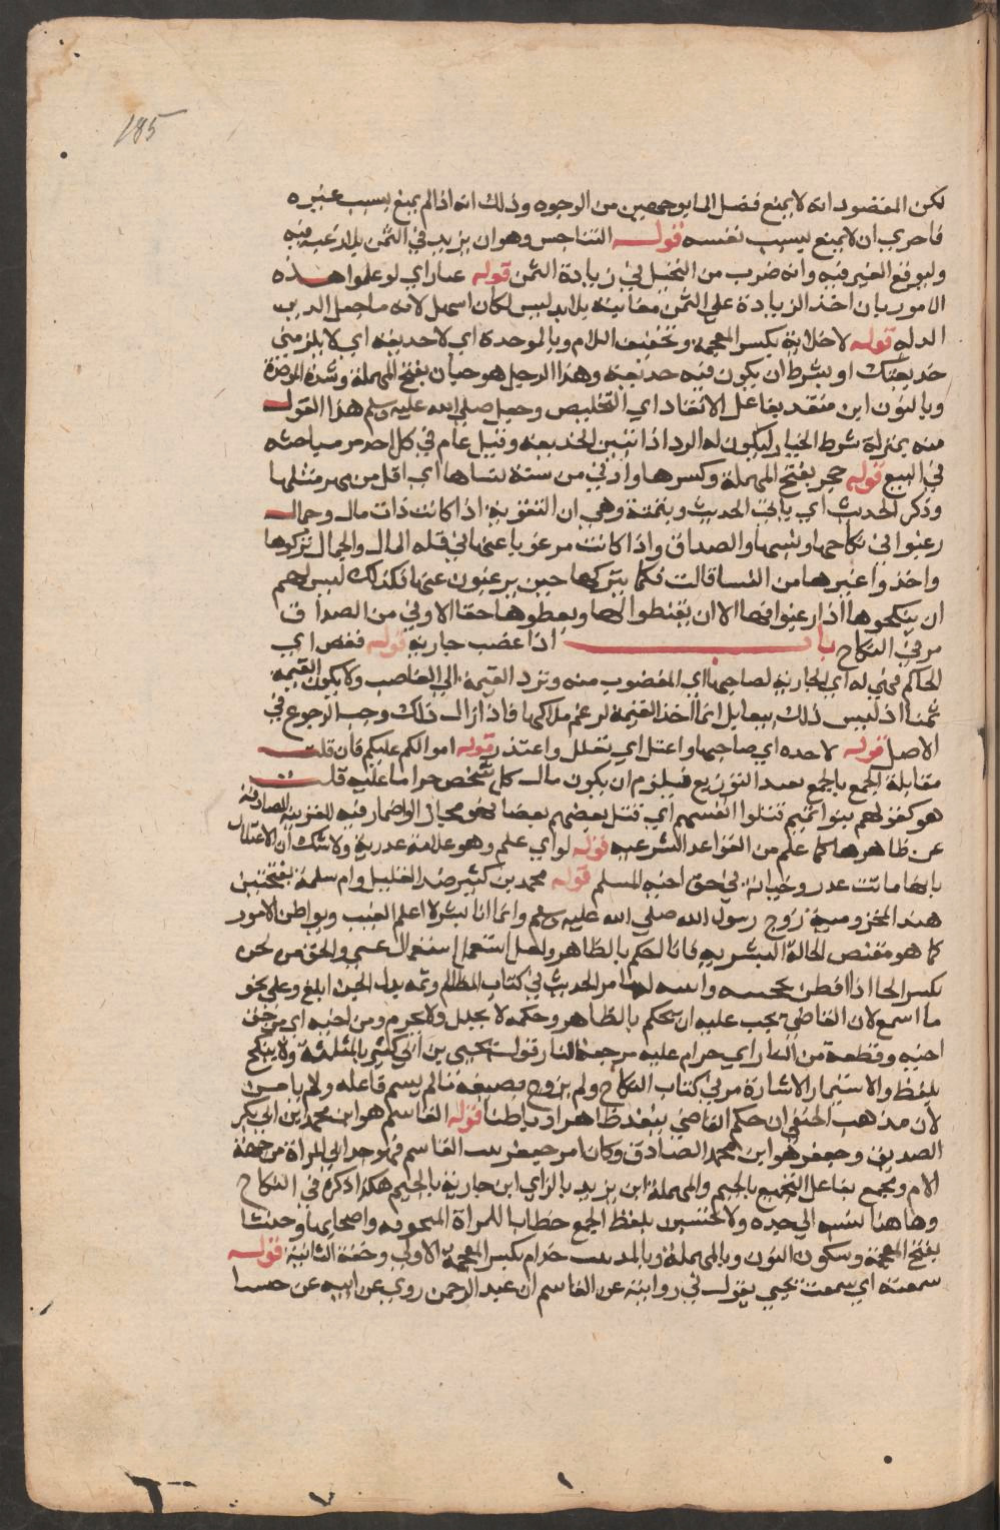 185
لكن المقصود انه لا يمنع فضل الما بوجه من الوجوه وذلك انه اذا لم يمنع بسبب غيره
فاحرى ان لا يمنع بسبب نفسه قوله التناجس وهو ان يزيد في الثمن بلا رغبة فيه
وليوقع الغير فيه وانه ضرب من التحيل في زيادة الثمن قوله عيانا اي لو علموا هذه
الامور بان اخذ الزيادة على الثمن معاينة بلا تدليس لكان اسهل لانه ما جعل الدين
الة له قوله لا خلابة بكسر المعجمة وتخفيف اللام وبالموحدة اي لا خديعة اي لا يلزمني
خديعتك او بشرط ان يكون فيه خديعة وهذا الرجل هو حبان بفتح المهملة وشدة الموحدة
وبالنون ابن منقذ بفاعل الانقاذ اي التخليص وجعل صلى الله عليه وسلم هذا القول
منه بمنزلة شرط الخيار ليكون له الرد اذا تبين الخديعة وقيل عام في كل احد مر مباحثه
في البيع قوله حجر بفتح المهملة وكسرها وادنى من سنة نسائها اي اقل من مهر مثلها
وذكر الحديث اي باقي الحديث وتتمته وهي ان اليتيمة اذا كانت ذات مال وجمال
رغبوا في نكاحها ونسبها والصداق واذا كانت مرغوبا عنها في قلة المال والجمال تركوها
واخذوا غيرها من النسا قالت فكما يتركها حين يرغبون عنها فكذلك ليس لهم
ان ينكحوها اذا رغبوا فيها الا ان يقسطوا لها ويعطوها حقها الاوفى من الصداق
مر في النكاح باب اذا غصب جارية قوله فقضى اي
الحاكم فهي له اي الجارية لصاحبها اي المغصوب منه وترد القيمة الى الغاصب ولا يكون القيمة
ثمنا اذ ليس ذلك بيعا بل انما اخذ القيمة لزعم هلاكها فاذا زال ذلك وجب الرجوع في
الاصل قوله لاحده اي صاحبها واعتل اي تعلل واعتذر قوله اموالكم عليكم فان قلت
مقابلة الجمع بالجمع يفيد التوزيع فيلزم ان يكون مال كل شخص حراما عليه قلت
هو كقولهم بنوا تميم قتلوا انفسهم اي قتل بعضهم بعضا فهو مجاز او اضمار فيه للقرينة الصارفة
عن ظاهرها كما علم من القواعد الشرعية قوله لواي علم وهو علامة غدرته ولا شك ان الاعتلال
بانها ماتت غدر وخيانة في حق اخيه المسلم قوله محمد بن كثير ضد القليل وام سلمة بفتحتين
هند المخزومية زوج رسول الله صلى الله عليه وسلم وانما انا بشر لا اعلم الغيب وبواطن الامور
كما هو مقتضى الحالة البشرية فانا احكم بالظاهر ولعل استعمل استعمال عسى والحق من لحن
بكسر الحا اذا فطن بحجته مر الحديث في كتاب المظالم وثمة بدل الحن ابلغ وعلى نحو
ما اسمع لان القاضي يجب عليه ان يحكم بالظاهر وحكمه لا يحلل ولا يحرم ومن اخيه اي من حق
اخيه وقطعة من النار اي حرام عليه مرجعه النار قوله يحيى بن ابي كثير بالمثلثة ولا ينكح
بلفظ والاستئمار الاشارة مر في كتاب النكاح ولم يزوج بصيغة ما لم يسم فاعله
لان مذهب الحنفي ان حكم القاضي ينفذ ظاهرا وباطنا قوله القاسم هو ابن محمد ابن ابي بكر
الصديق وجعفر هو ابن محمد الصادق وكانا مر جعفر بنت القاسم فهو جد ابي المراة من جهة
الام ومجمع بفاعل التجميع بالجيم والمهملة ابن يزيد بالزاي ابن جارية بالجيم هكذا ذكره في النكاح
وهاهنا نسبه الى جده ولا تخشين بلفظ الجمع خطاب للمراة المتخوفة واصحابها وخنسا
بفتح المعجمة وسكون النون وبالمهملة وبالمد بنت خدام بكسر المعجمة الاولى وخفة الثانية قوله
سمعته اي سمعت يحيى يقول في روايته عن القاسم ان عبد الرحمن روى عن ابيه عن خنسا